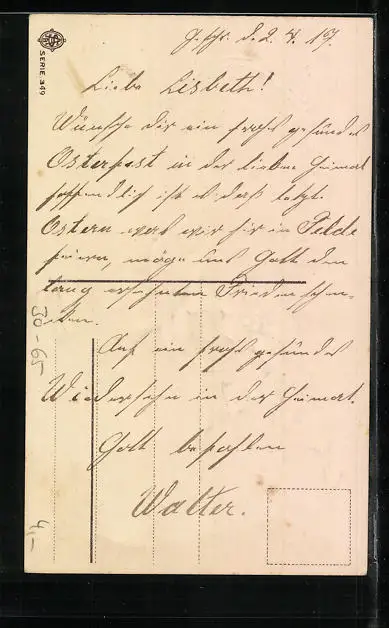 Geschr. d. 2. 4. 17.
Liebe Lisbeth!
Wünsche dir ein frohes gesundes
Osterfest in der lieben Heimat
hoffendlich ist es das letzte
Ostern was wir hier im Felde
feiern, möge uns Gott den
lang ersehnten Frieden schen-
ken.
Auf ein frohes gesundes
Wiedersehn in der Heimat.
Gott befohlen
Walter.
SERIE 349
30-65
4,-